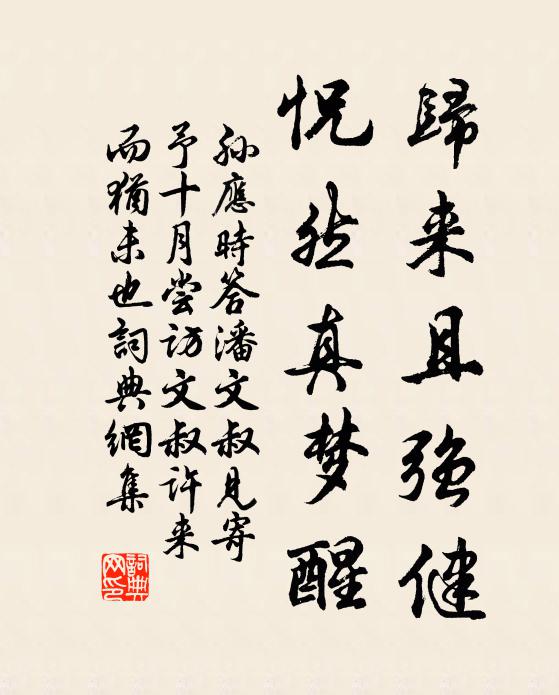 歸来且强健
怳然真梦醒
孙應時答潘文叔見寄
予十月尝访文叔许来
而猶未也詞典網集
詞典网印